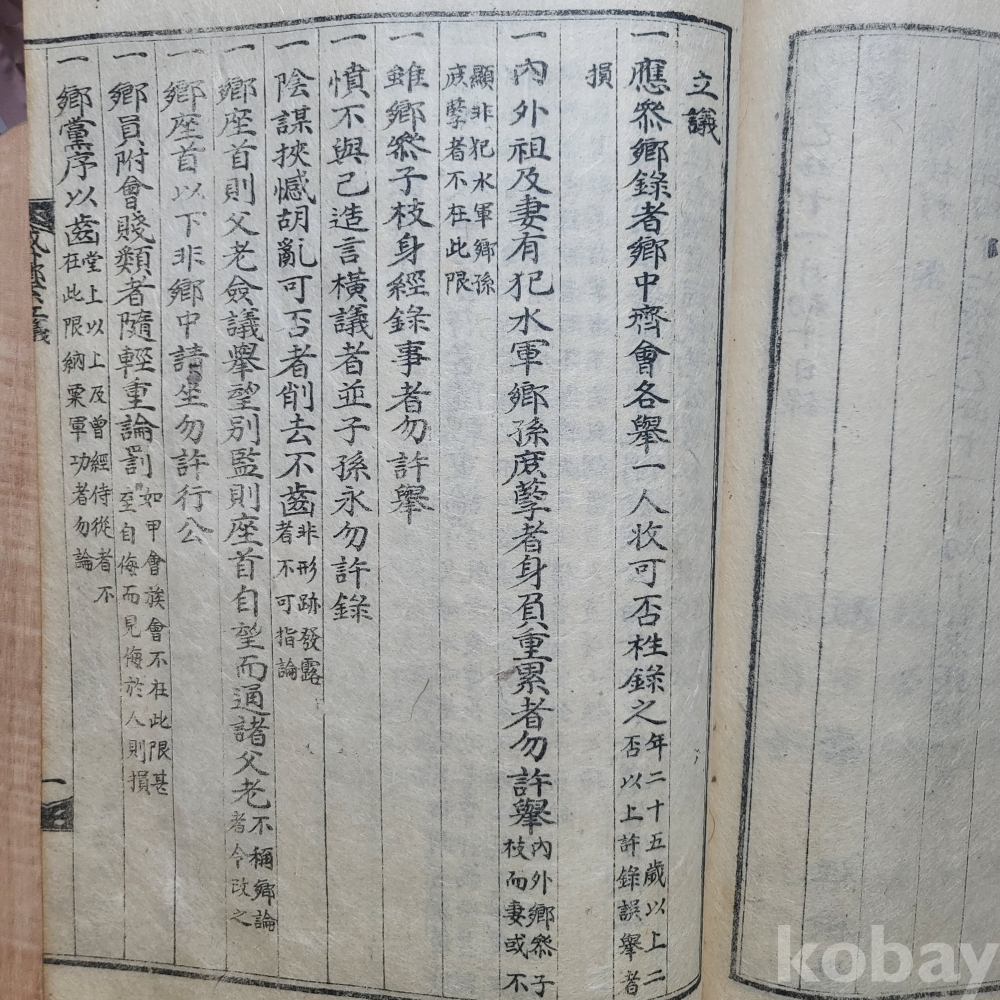 立議
一應叅鄕錄者鄕中齊會各擧一人收可否栍錄之年二十五歲以上二否以上許錄誤擧者
損
一內外祖及妻有犯水軍鄕孫庶孽者身負重累者勿許擧內外鄕叅子枝而妻或不
顯非犯水軍鄕孫庶孽者不在此限
一雖鄕叅子枝身經錄事者勿許擧
一憤不與己造言橫議者並子孫永勿許錄
一陰謀挾憾胡亂可否者削去不齒非形跡發露者不可指論
一鄕座首則父老僉議擧望別監則座首自望而通諸父老不稱鄕論者令改之
一鄕座首以下非鄕中請坐勿許行公
一鄕員附會賤類者隨輕重論罰如甲會族會不在此限甚至自侮而見侮於人則損
一鄕黨序以齒堂上以上及曾經侍從者不在此限納粟軍功者勿論
一
kobay